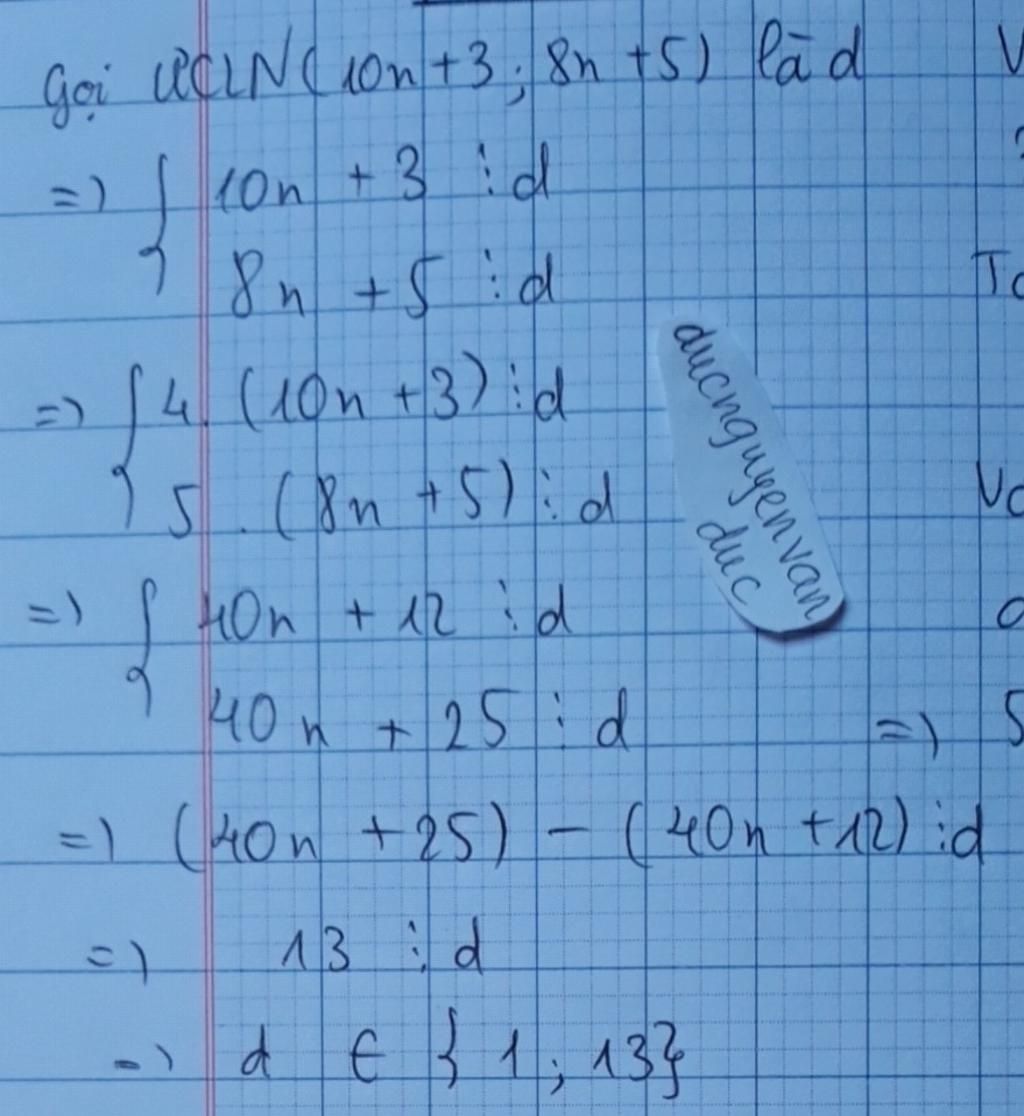 Gọi ƯCLN(10n+3; 8n+5) là d
=> { 10n + 3 ⋮ d
8n + 5 ⋮ d
=> { 4. (10n + 3) ⋮ d
5 . (8n + 5) ⋮ d
=> { 40n + 12 ⋮ d
40n + 25 ⋮ d
=> (40n + 25) - (40n + 12) ⋮ d
=> 13 ⋮ d
=> d ∈ { 1 ; 13}
ducnguyenvan
duc
=>